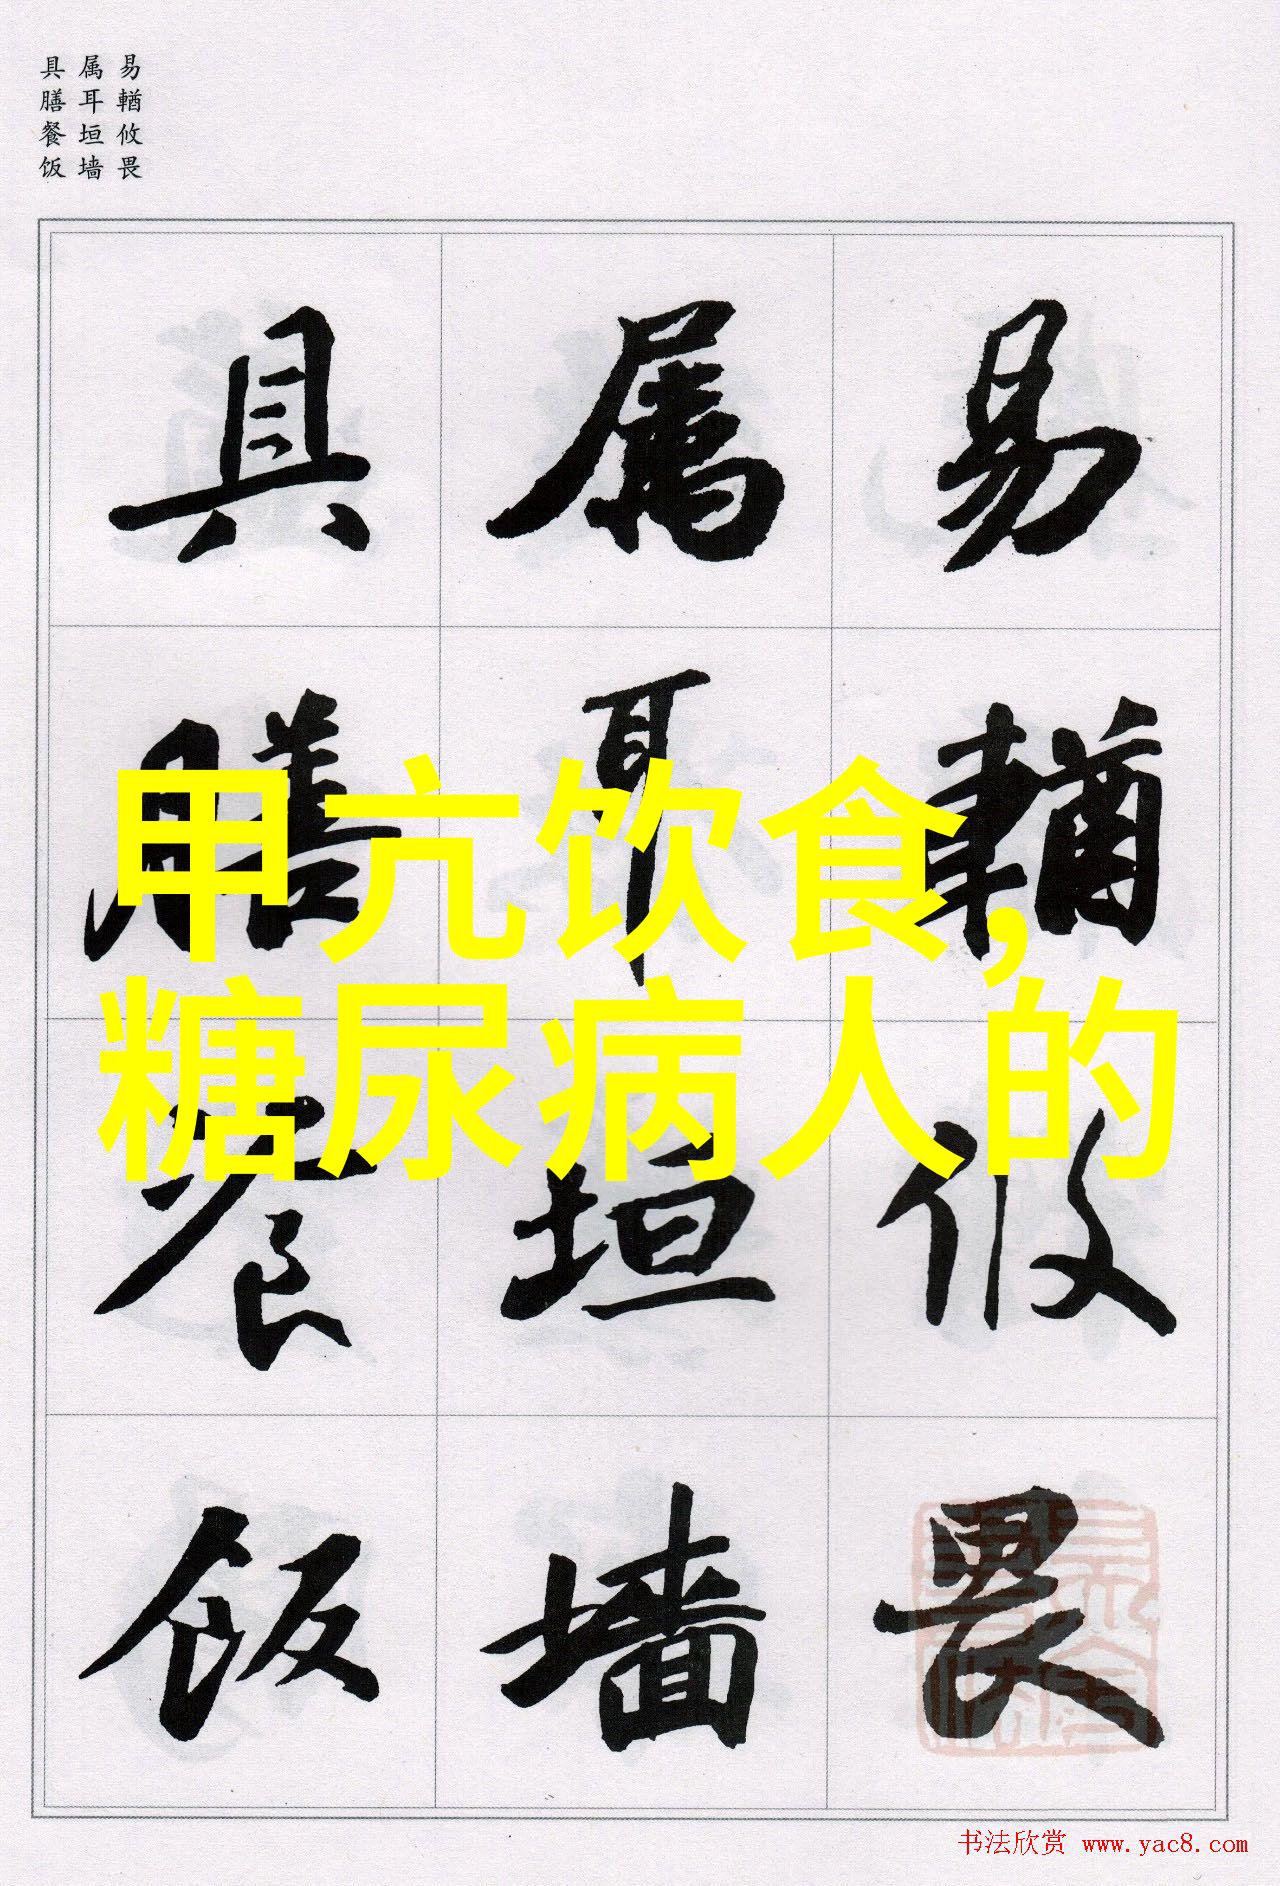 易輶攸畏
属耳垣墙
具膳餐饭
易輶攸畏
属耳垣墙
具膳餐饭
甲亢饮食,
糖尿病人的
书法欣赏 www.yac8.com